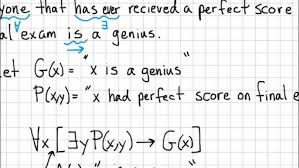 yone that has ever recieved a perfect score
al exam is a genius.
∀ ∃
et G(x) = "x is a genius"
P(x,y) = "x had perfect score on final e
∀x [∃y P(x,y) → G(x)]